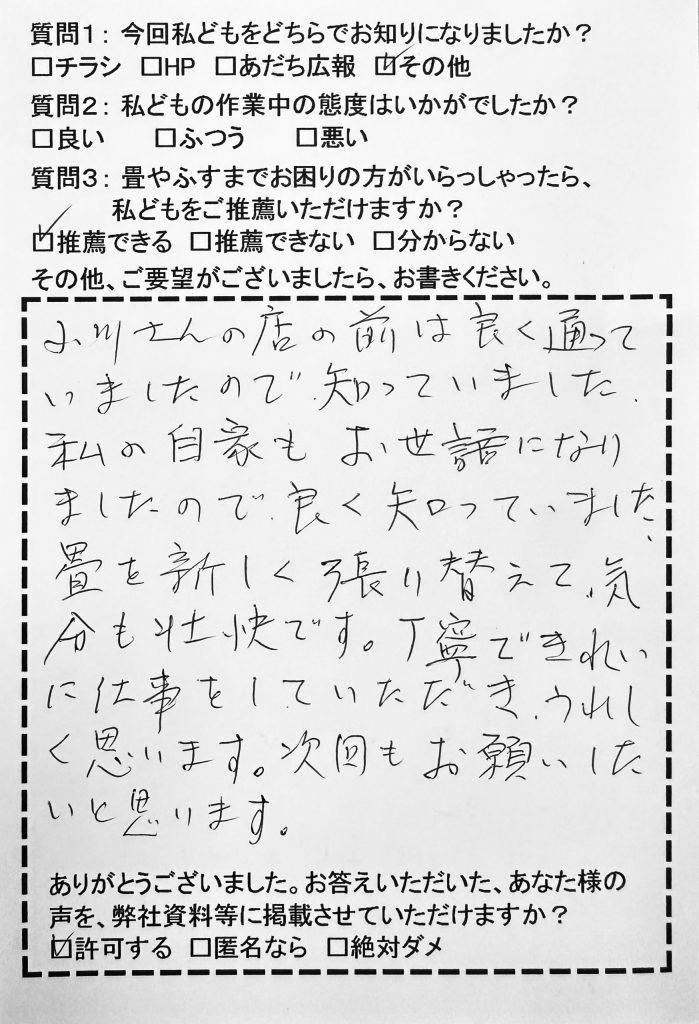 質問1：今回私どもをどちらでお知りになりましたか？
□チラシ □HP □あだち広報 ☑その他
質問2：私どもの作業中の態度はいかがでしたか？
□良い □ふつう □悪い
質問3：畳やふすまでお困りの方がいらっしゃったら、
私どもをご推薦いただけますか？
☑推薦できる □推薦できない □分からない
その他、ご要望がございましたら、お書きください。
小川さんの店の前は良く通って
いましたので、知っていました。
私の自家もお世話になり
ましたので、良く知っていました、
畳を新しく張り替えて、気
分も壮快です。丁寧できれい
に仕事をしていただき、うれし
く思います。次回もお願いした
いと思います。
ありがとうございました。お答えいただいた、あなた様の
声を、弊社資料等に掲載させていただけますか？
☑許可する □匿名なら □絶対ダメ